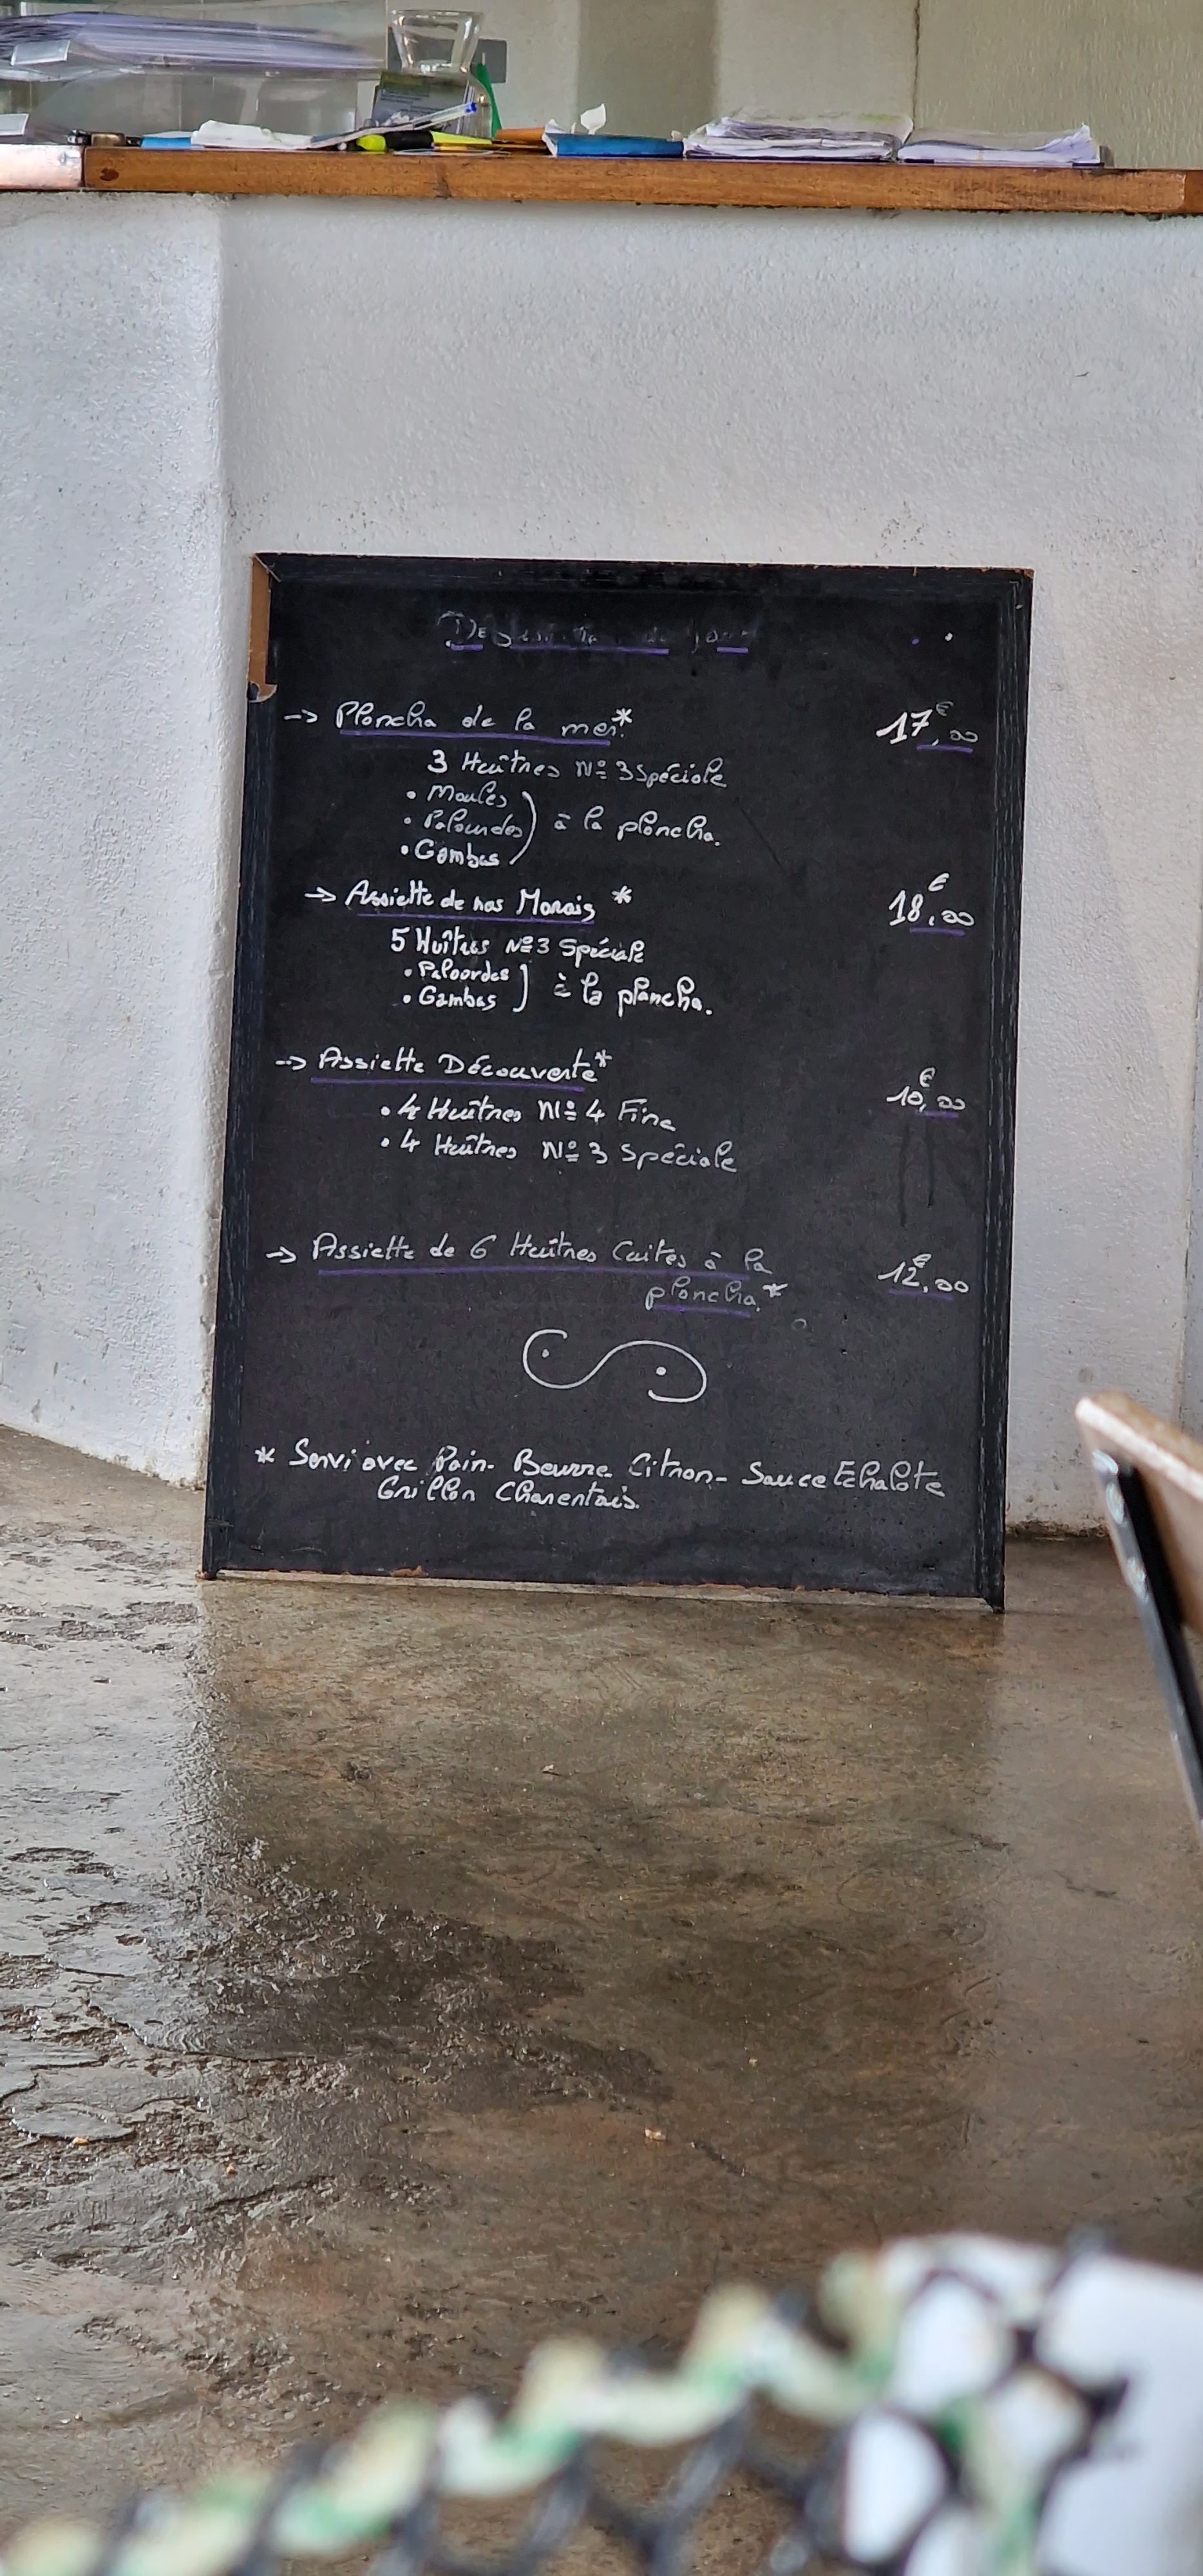 → Plancha de la mer* 17€,00
3 Huîtres N°3 Spéciale
• Moules
• Palourdes ) à la plancha.
• Gambas
→ Assiette de nos Marais * 18€,00
5 Huîtres N°3 Spéciale
• Palourdes
• Gambas ) à la plancha.
→ Assiette Découverte* 10€,00
• 4 Huîtres N°4 Fine
• 4 Huîtres N°3 Spéciale
→ Assiette de 6 Huîtres Cuites à la 12€,00
plancha.*
* Servi avec Pain- Beurre Citron- Sauce Echalote
Grillon Charentais.